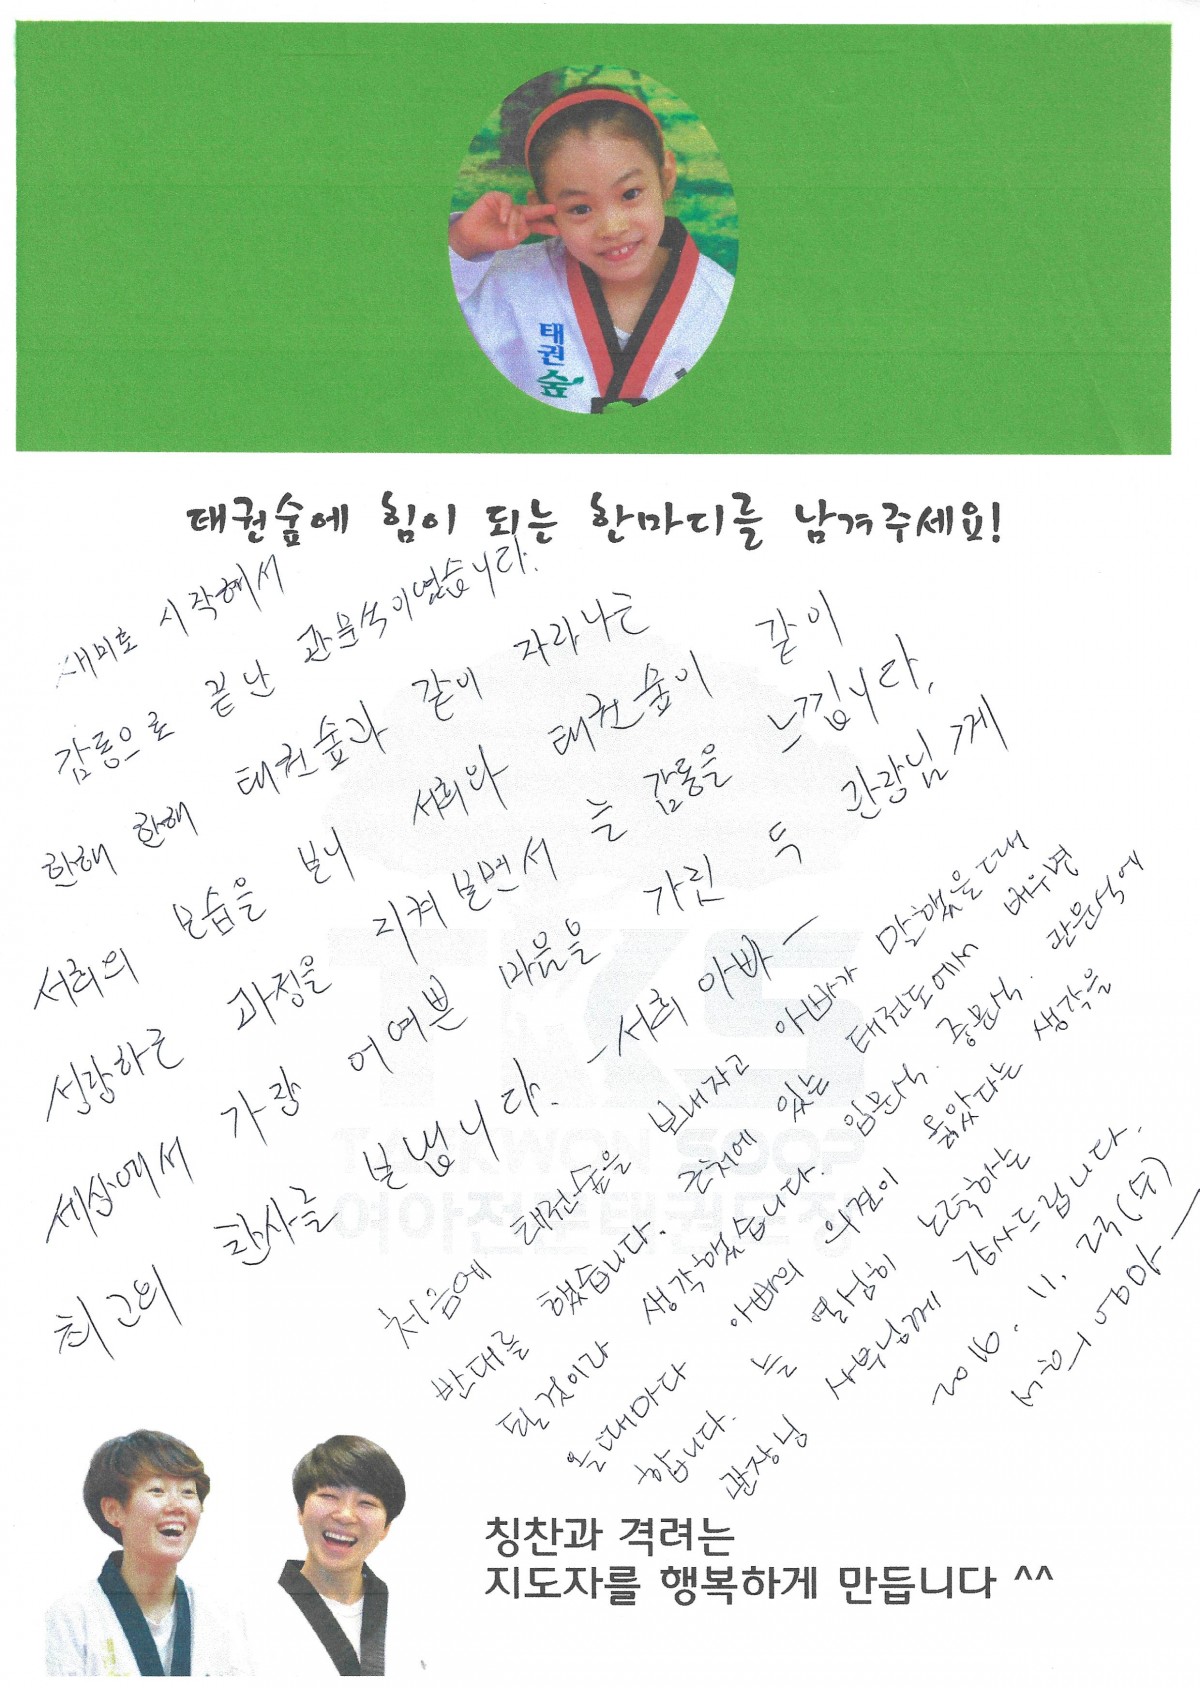 태권숲
태권숲에 힘이 되는 한마디를 남겨주세요!
재미로 시작해서
감동으로 끝난 관문식이었습니다.
한해 한해 태권숲과 같이 자라나는
서희의 모습을 보니 서희와 태권숲이 같이
성장하는 과정을 지켜보면서 늘 감동을 느낍니다.
세상에서 가장 어여쁜 마음을 가진 두 관장님께
최고의 감사를 보냅니다. -서희 아빠-
처음에 태권숲을 보내자고 아빠가 말했을때
반대를 했습니다. 근처에 있는 태권도에서 배우면
될것이라 생각했습니다. 입문식. 승문식. 관문식에
올때마다 아빠의 의견이 옳았다는 생각을
합니다. 늘 열심히 노력하는
관장님 사부님께 감사드립니다.
2016. 11. 23(수)
서희 엄마
TKS
TAEKWON SOOP
여아전문태권도장
칭찬과 격려는
지도자를 행복하게 만듭니다 ^^